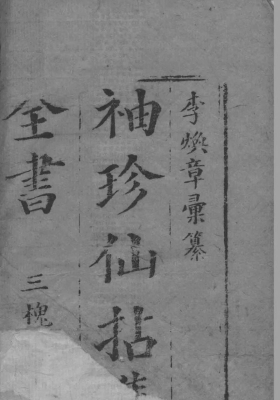 李煥章彙纂
袖珍仙拈
全書
三槐